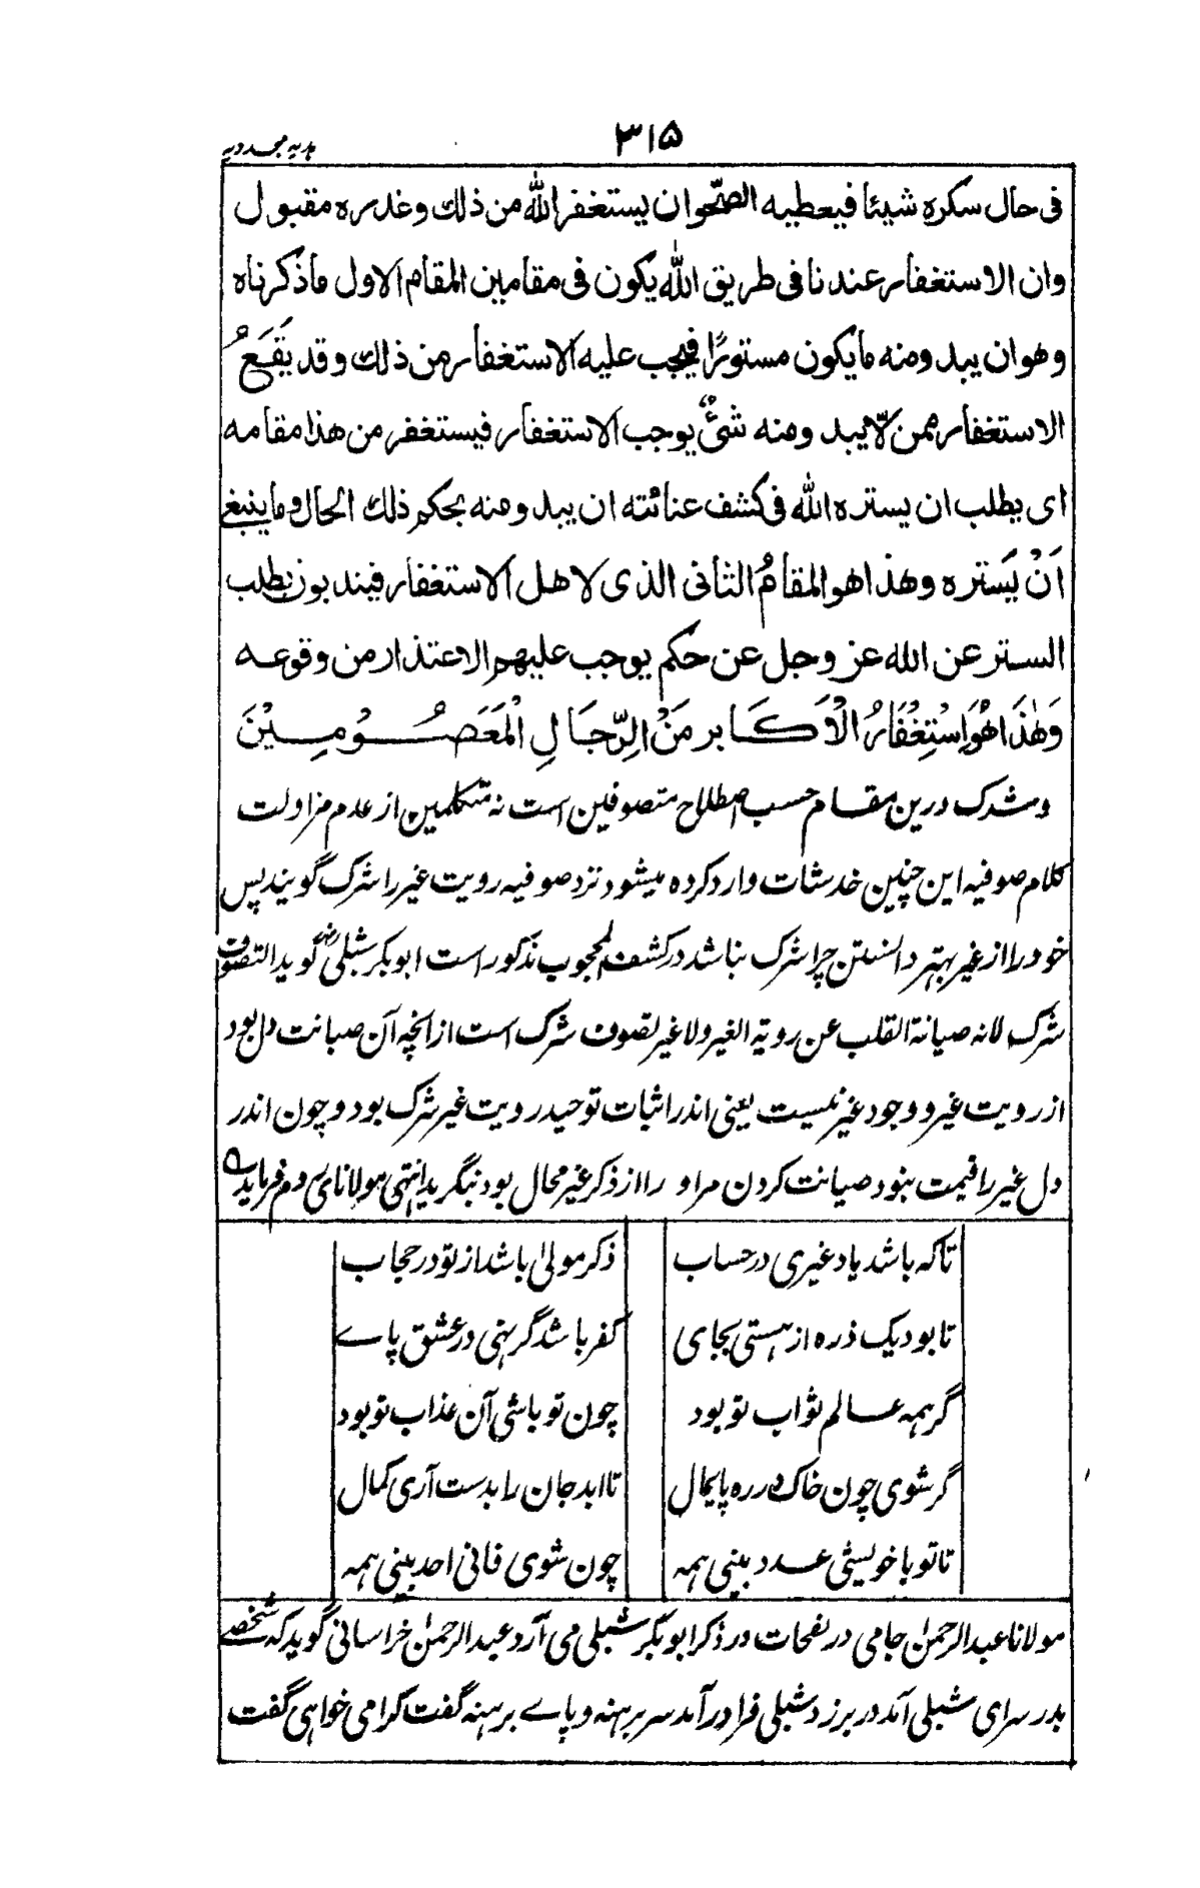 ۳۱۵
ہدیہ مجددیہ
فی حال سکرہ شیئا فیعطیه الصّحوان یستغفر اللّٰه من ذلك وعذره مقبول
وان الاستغفار عندنا فی طریق اللّٰه یکون فی مقامین المقام الاول ماذکرناه
وهوان یبدومنه مایکون مستورًا فیجب علیه الاستغفار من ذلك وقد یَقَعُ
الاستغفار ممن لّایبد ومنه شئٌ یوجب الاستغفار فیستغفر من هذا مقامه
ای یطلب ان یستره اللّٰه فی کشف عنائته ان یبد ومنه بحکم ذلك الحال وماینبغی
اَنْ یَستره وهذا هوالمقامُ الثانی الذی لاهل الاستغفار فیندبون بطلب
الستر عن الله عز وجل عن حکم یوجب علیهم الاعتذار من وقوعه
وَهٰذَا هُوَ اسْتِغْفَارُ الْاَکَابر مَنْ الِرّجَالِ الْمَعَصُوْمِیْنَ
وشرک درین مقام حسب اصطلاح متصوفین است نه متکلمین از عدم مزاولت
کلام صوفیه این چنین خدشات وارد کرده میشود نزد صوفیه رویت غیر را شرک گویند پس
خود را از غیر بهتر دانستن چرا شرک نباشد در کشف المحجوب مذکور است ابوبکر شبلی گوید التصوف
شرک لانه صیانة القلب عن رویة الغیر ولا غیر تصوف شرک است ازانچه آن صیانت دل بود
از رویت غیر و وجود غیر نیست یعنی اندر اثبات توحید رویت غیر شرک بود و چون اندر
دل غیر را قیمت نبود صیانت کردن مراو را از ذکر غیر محال بود بنگرید انتهی مولانای روم فرماید
تاکه باشد یاد غیری در حساب ذکر مولیٰ باشد از تو در حجاب
تا بود یک ذره از هستی بجای کفر باشد گر نهی در عشق پاے
گر همه عالم ثواب تو بود چون تو باشی آن عذاب تو بود
گر شوی چون خاک در ره پایمال تا ابد جان را بدست آری کمال
تا تو با خویشی عدد بینی همه چون شوی فانی احد بینی همه
مولانا عبدالرحمٰن جامی در نفحات در ذکر ابوبکر شبلی می آرد عبدالرحمٰن خراسانی گوید که شخصے
بدر سرای شبلی آمد در بزد شبلی فرا در آمد سر برهنه و پاے برهنه گفت کرا می خواهی گفت